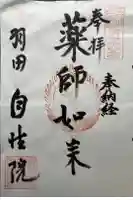 奉拝
奉納経
薬師如来
羽田 自性院